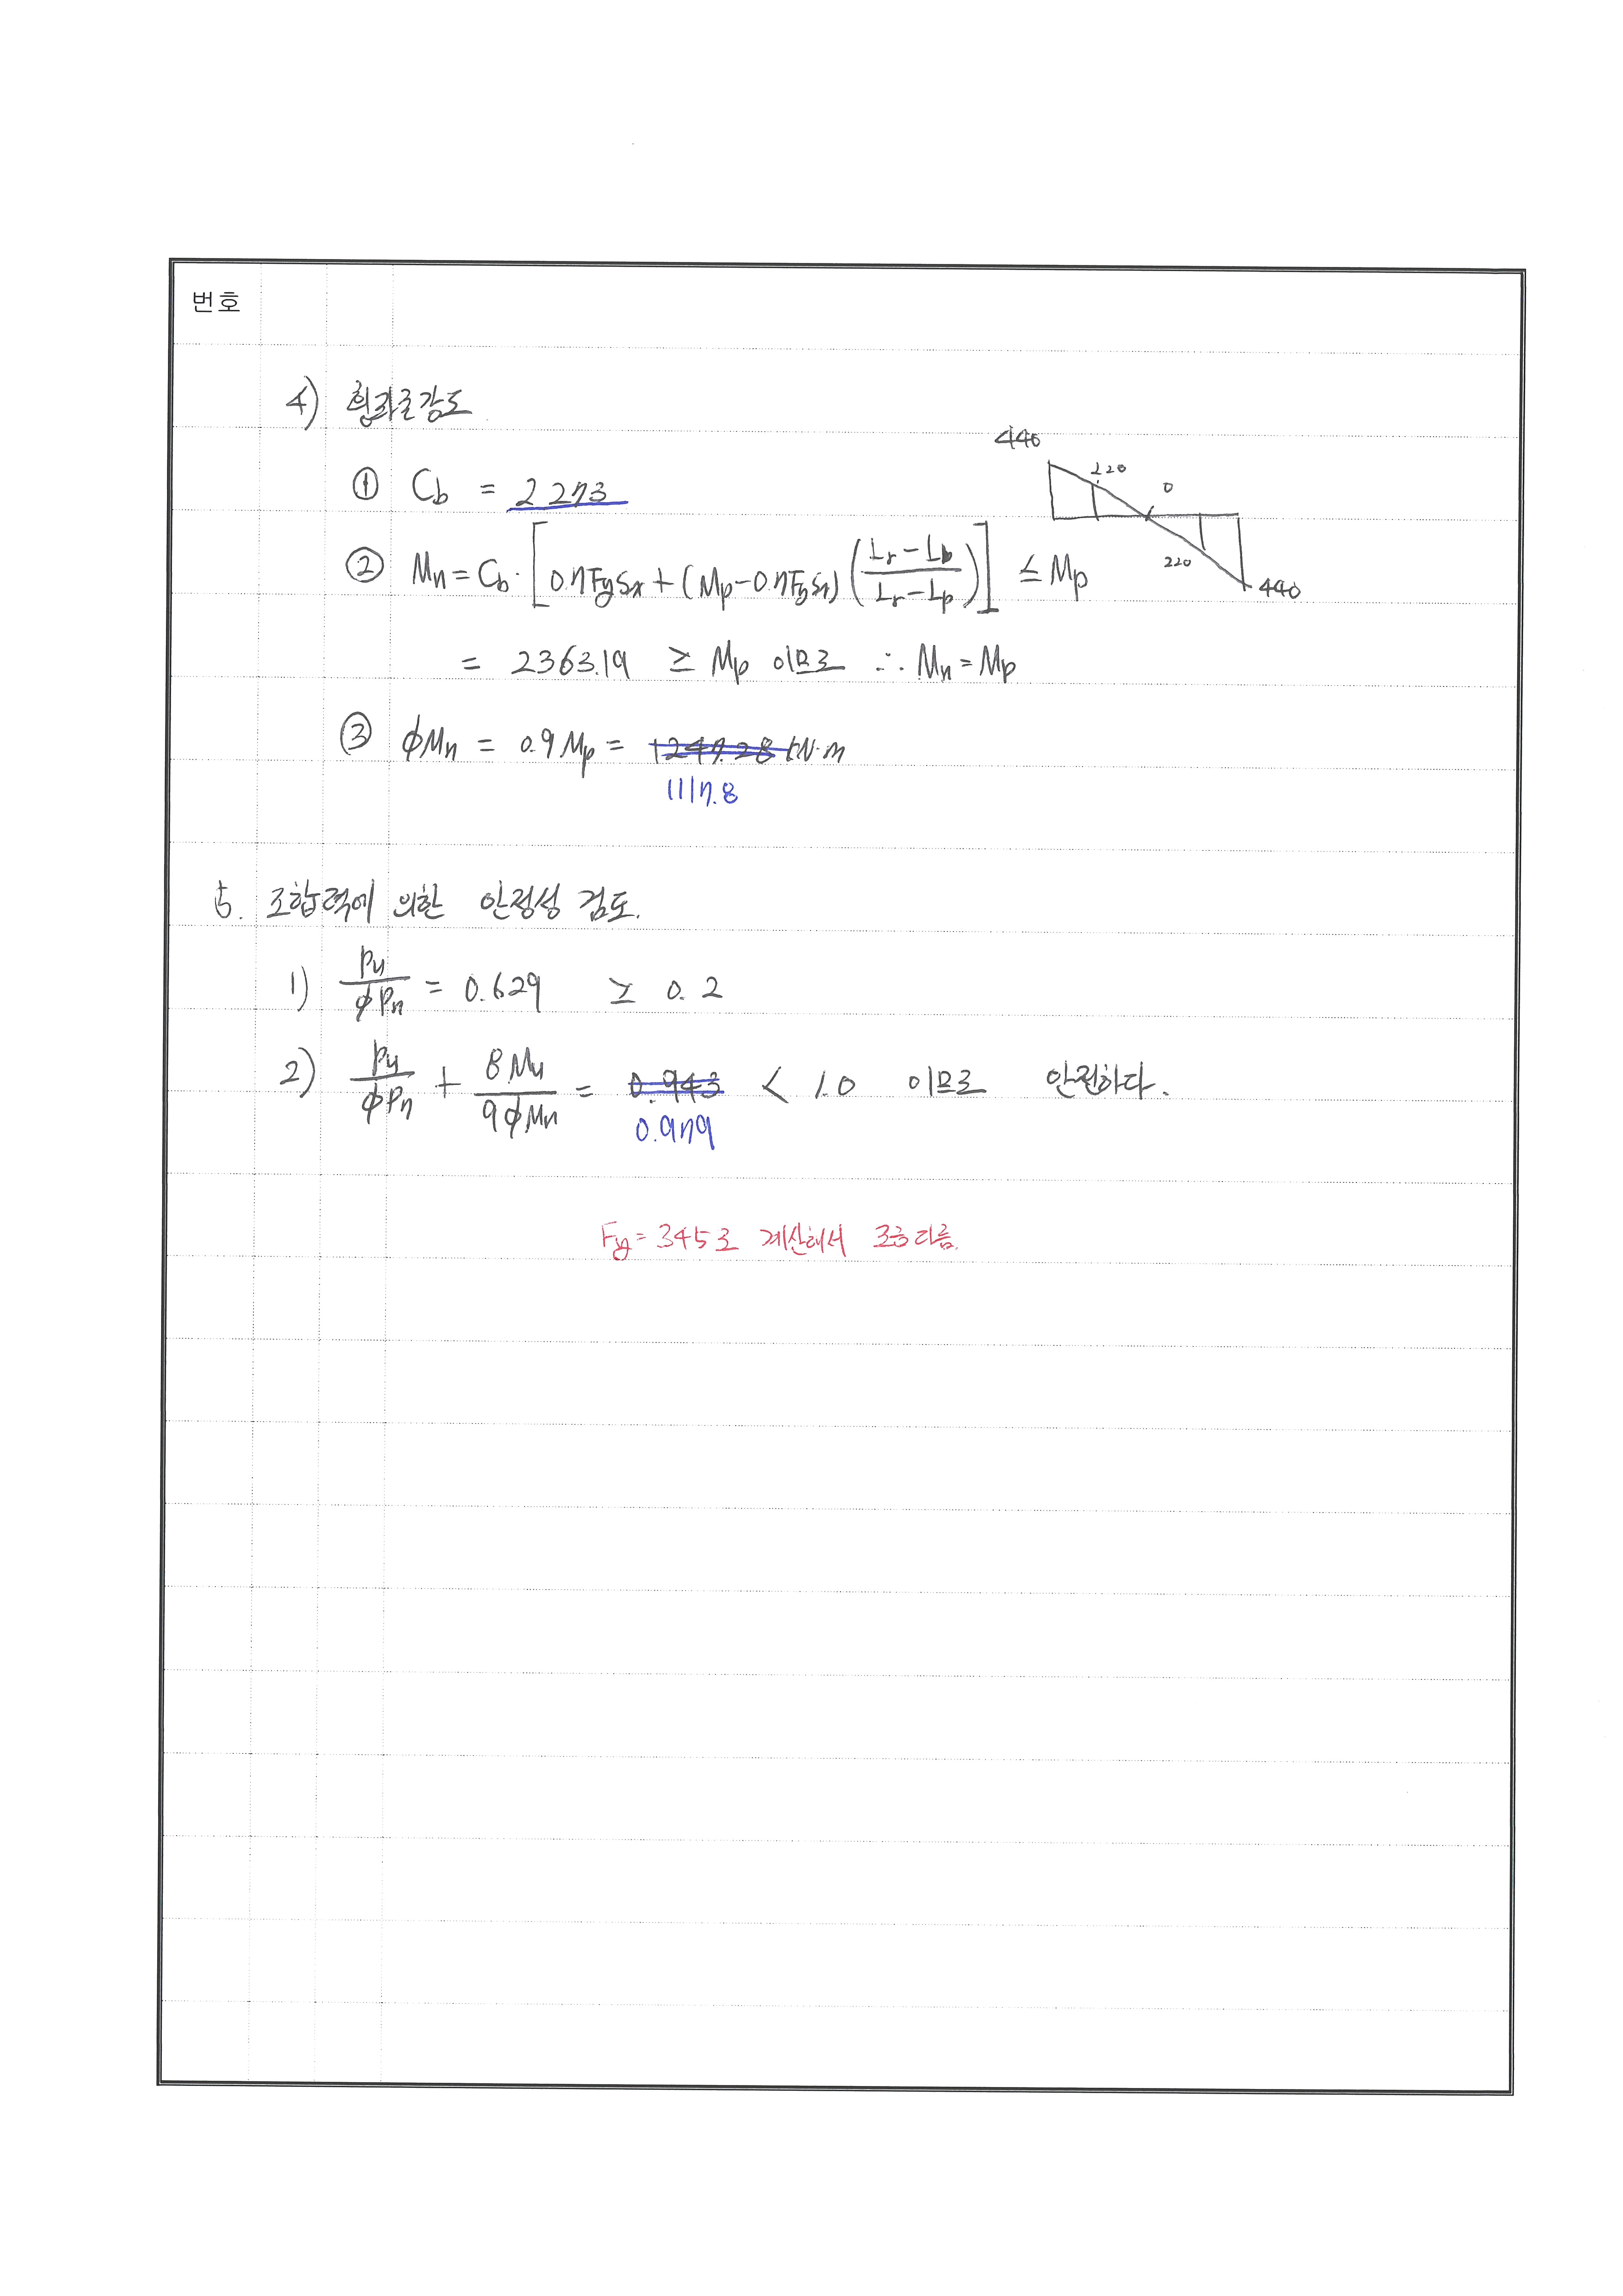 번호
4) 휨좌굴강도
440
① Cb = 2.273
220
0
② Mn = Cb · [0.7FySx + (Mp - 0.7FySx) (Lr - Lb / Lr - Lp)] ≤ Mp
220
440
= 2363.19 ≥ Mp 이므로 ∴ Mn = Mp
③ ϕMn = 0.9 Mp = 1247.28 kN·m
1117.8
5. 조합력에 의한 안정성 검토.
1) Pu / ϕPn = 0.629 ≥ 0.2
2) Pu / ϕPn + 8Mu / 9ϕMn = 0.943 < 1.0 이므로 안전하다.
0.979
Fy = 345로 계산해서 조금 다름.